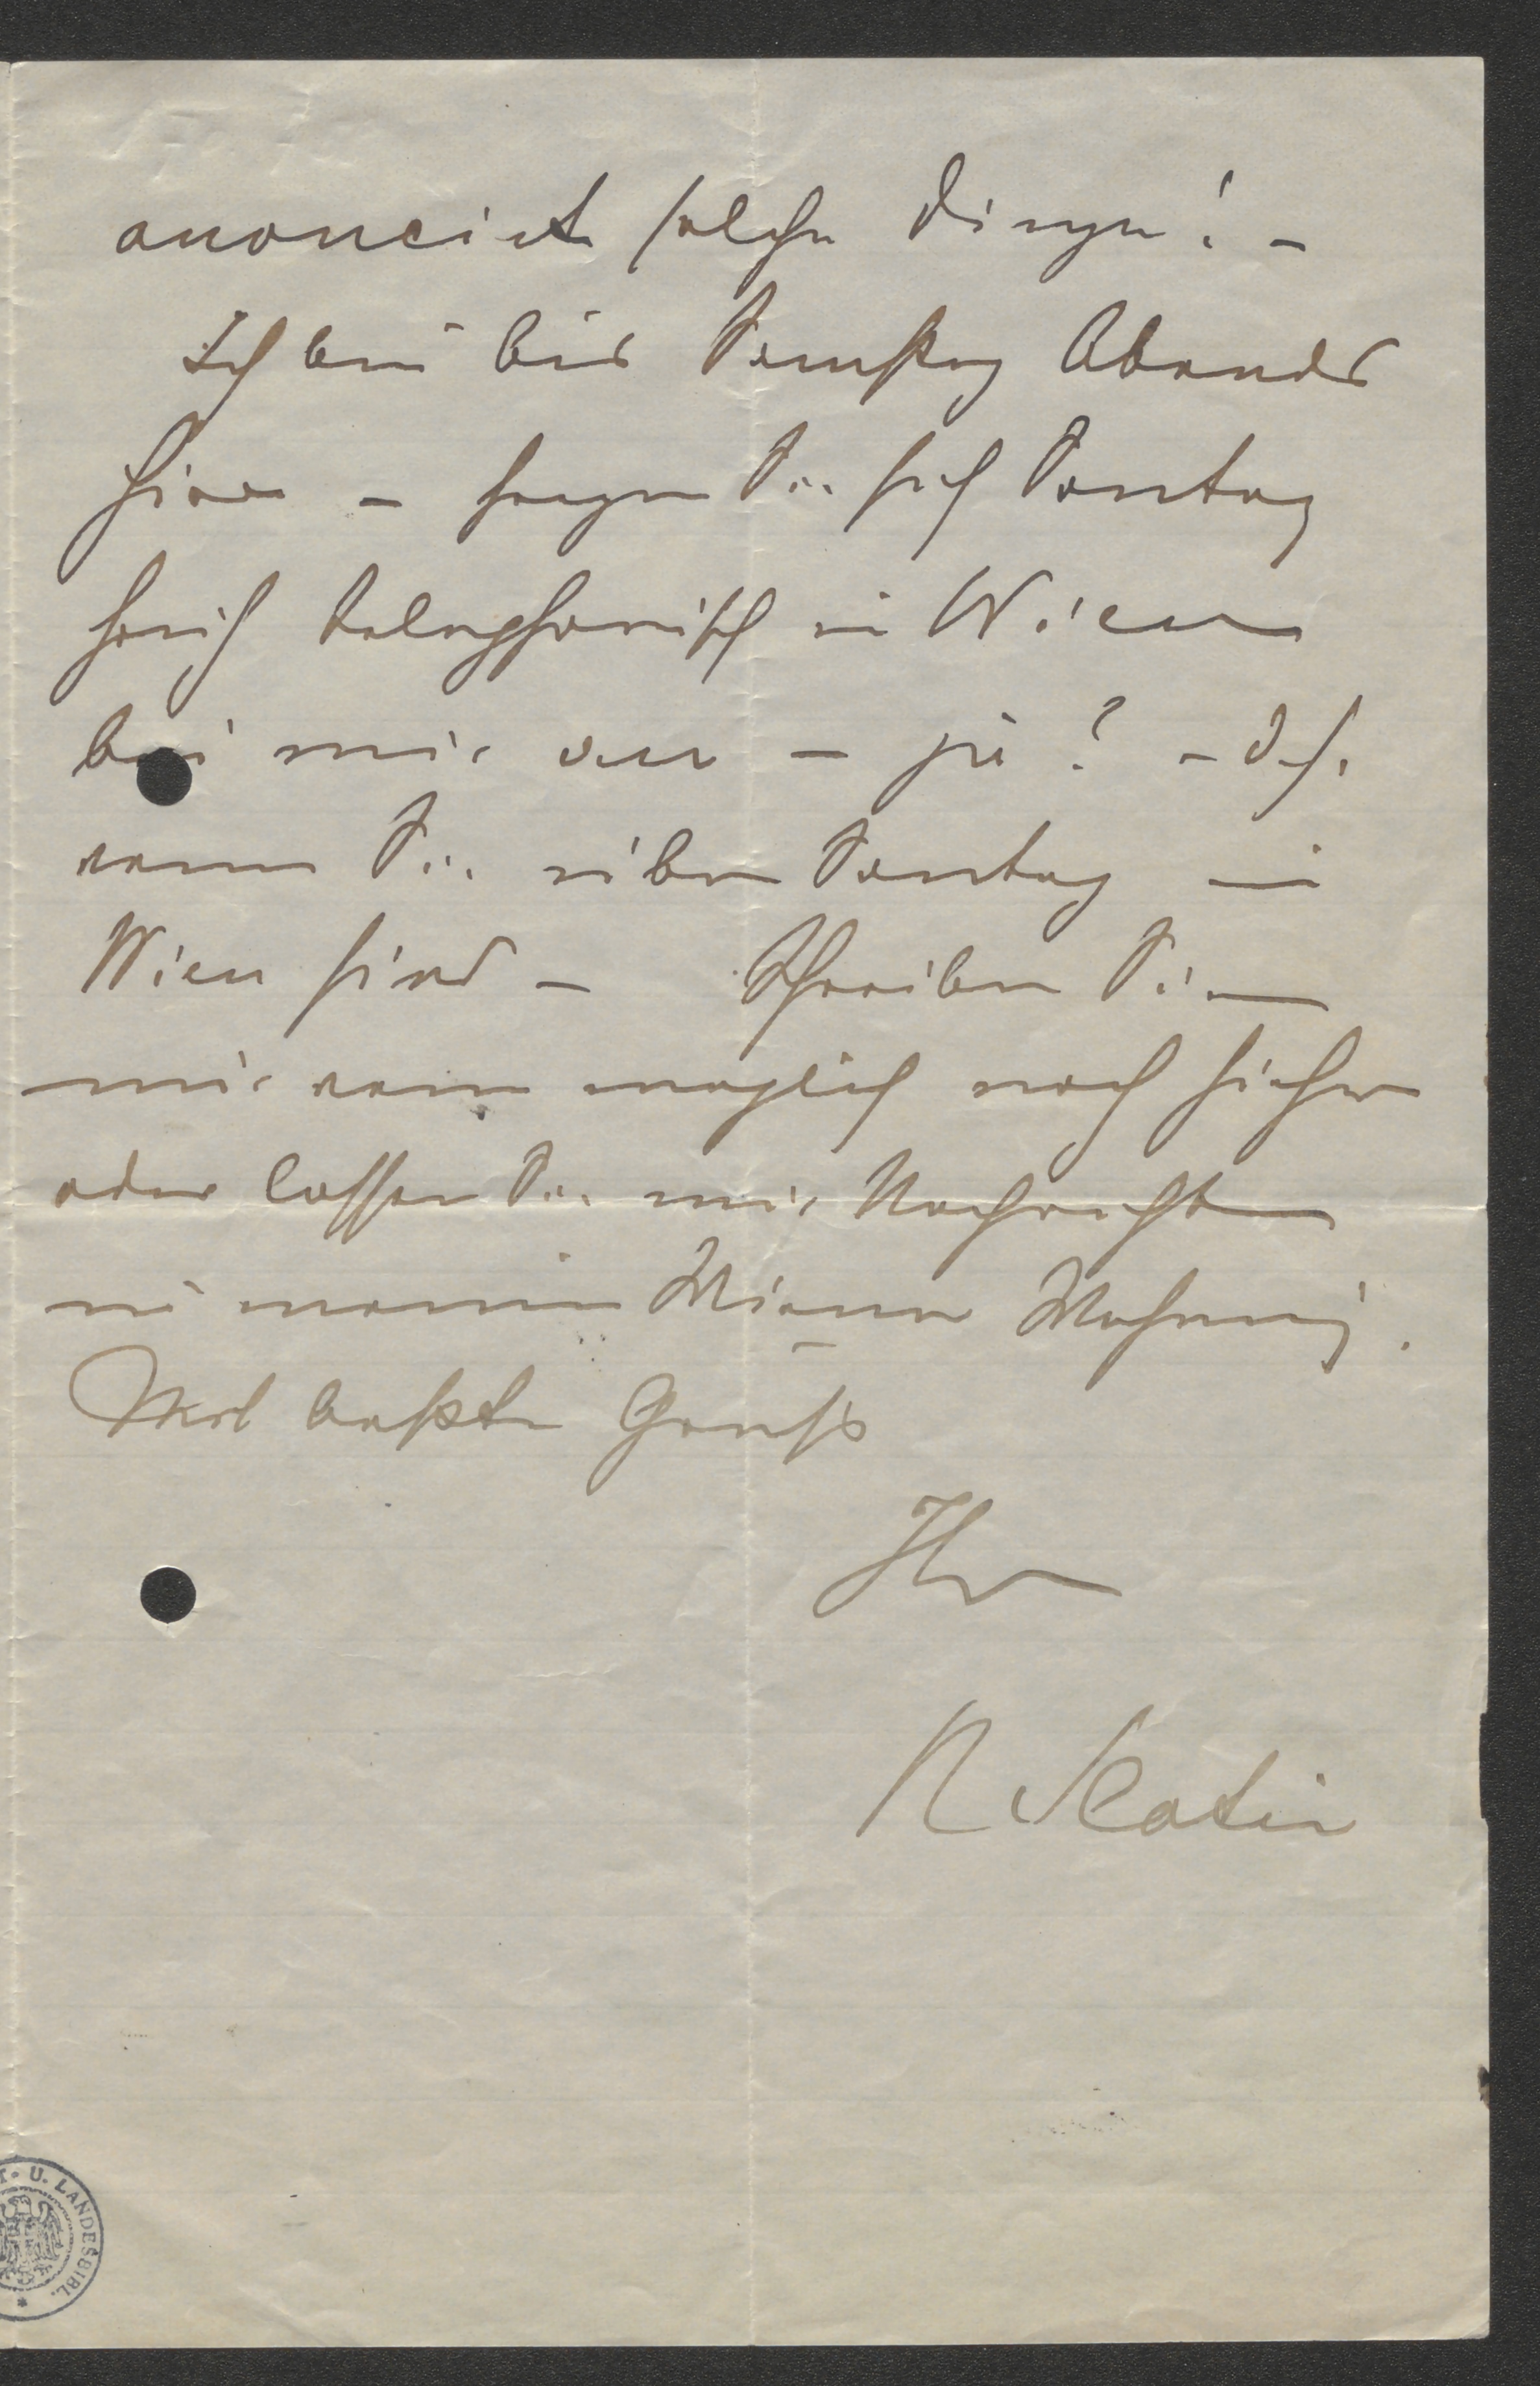 anoncirt solche Dinge! –
Ich bin bis Samstag Abends
hier – fragen Sie sich Sontag
früh telephonisch in Wien
bei mir an – ja? – d. h.
wenn Sie über Sontag in
Wien sind – Schreiben Sie
mir wenn möglich noch hieher
oder lassen Sie mir Nachricht
in meiner Wiener Wohnung.
Mit besten Gruß
Ihr
R Slatin
U. LANDESBIBL.